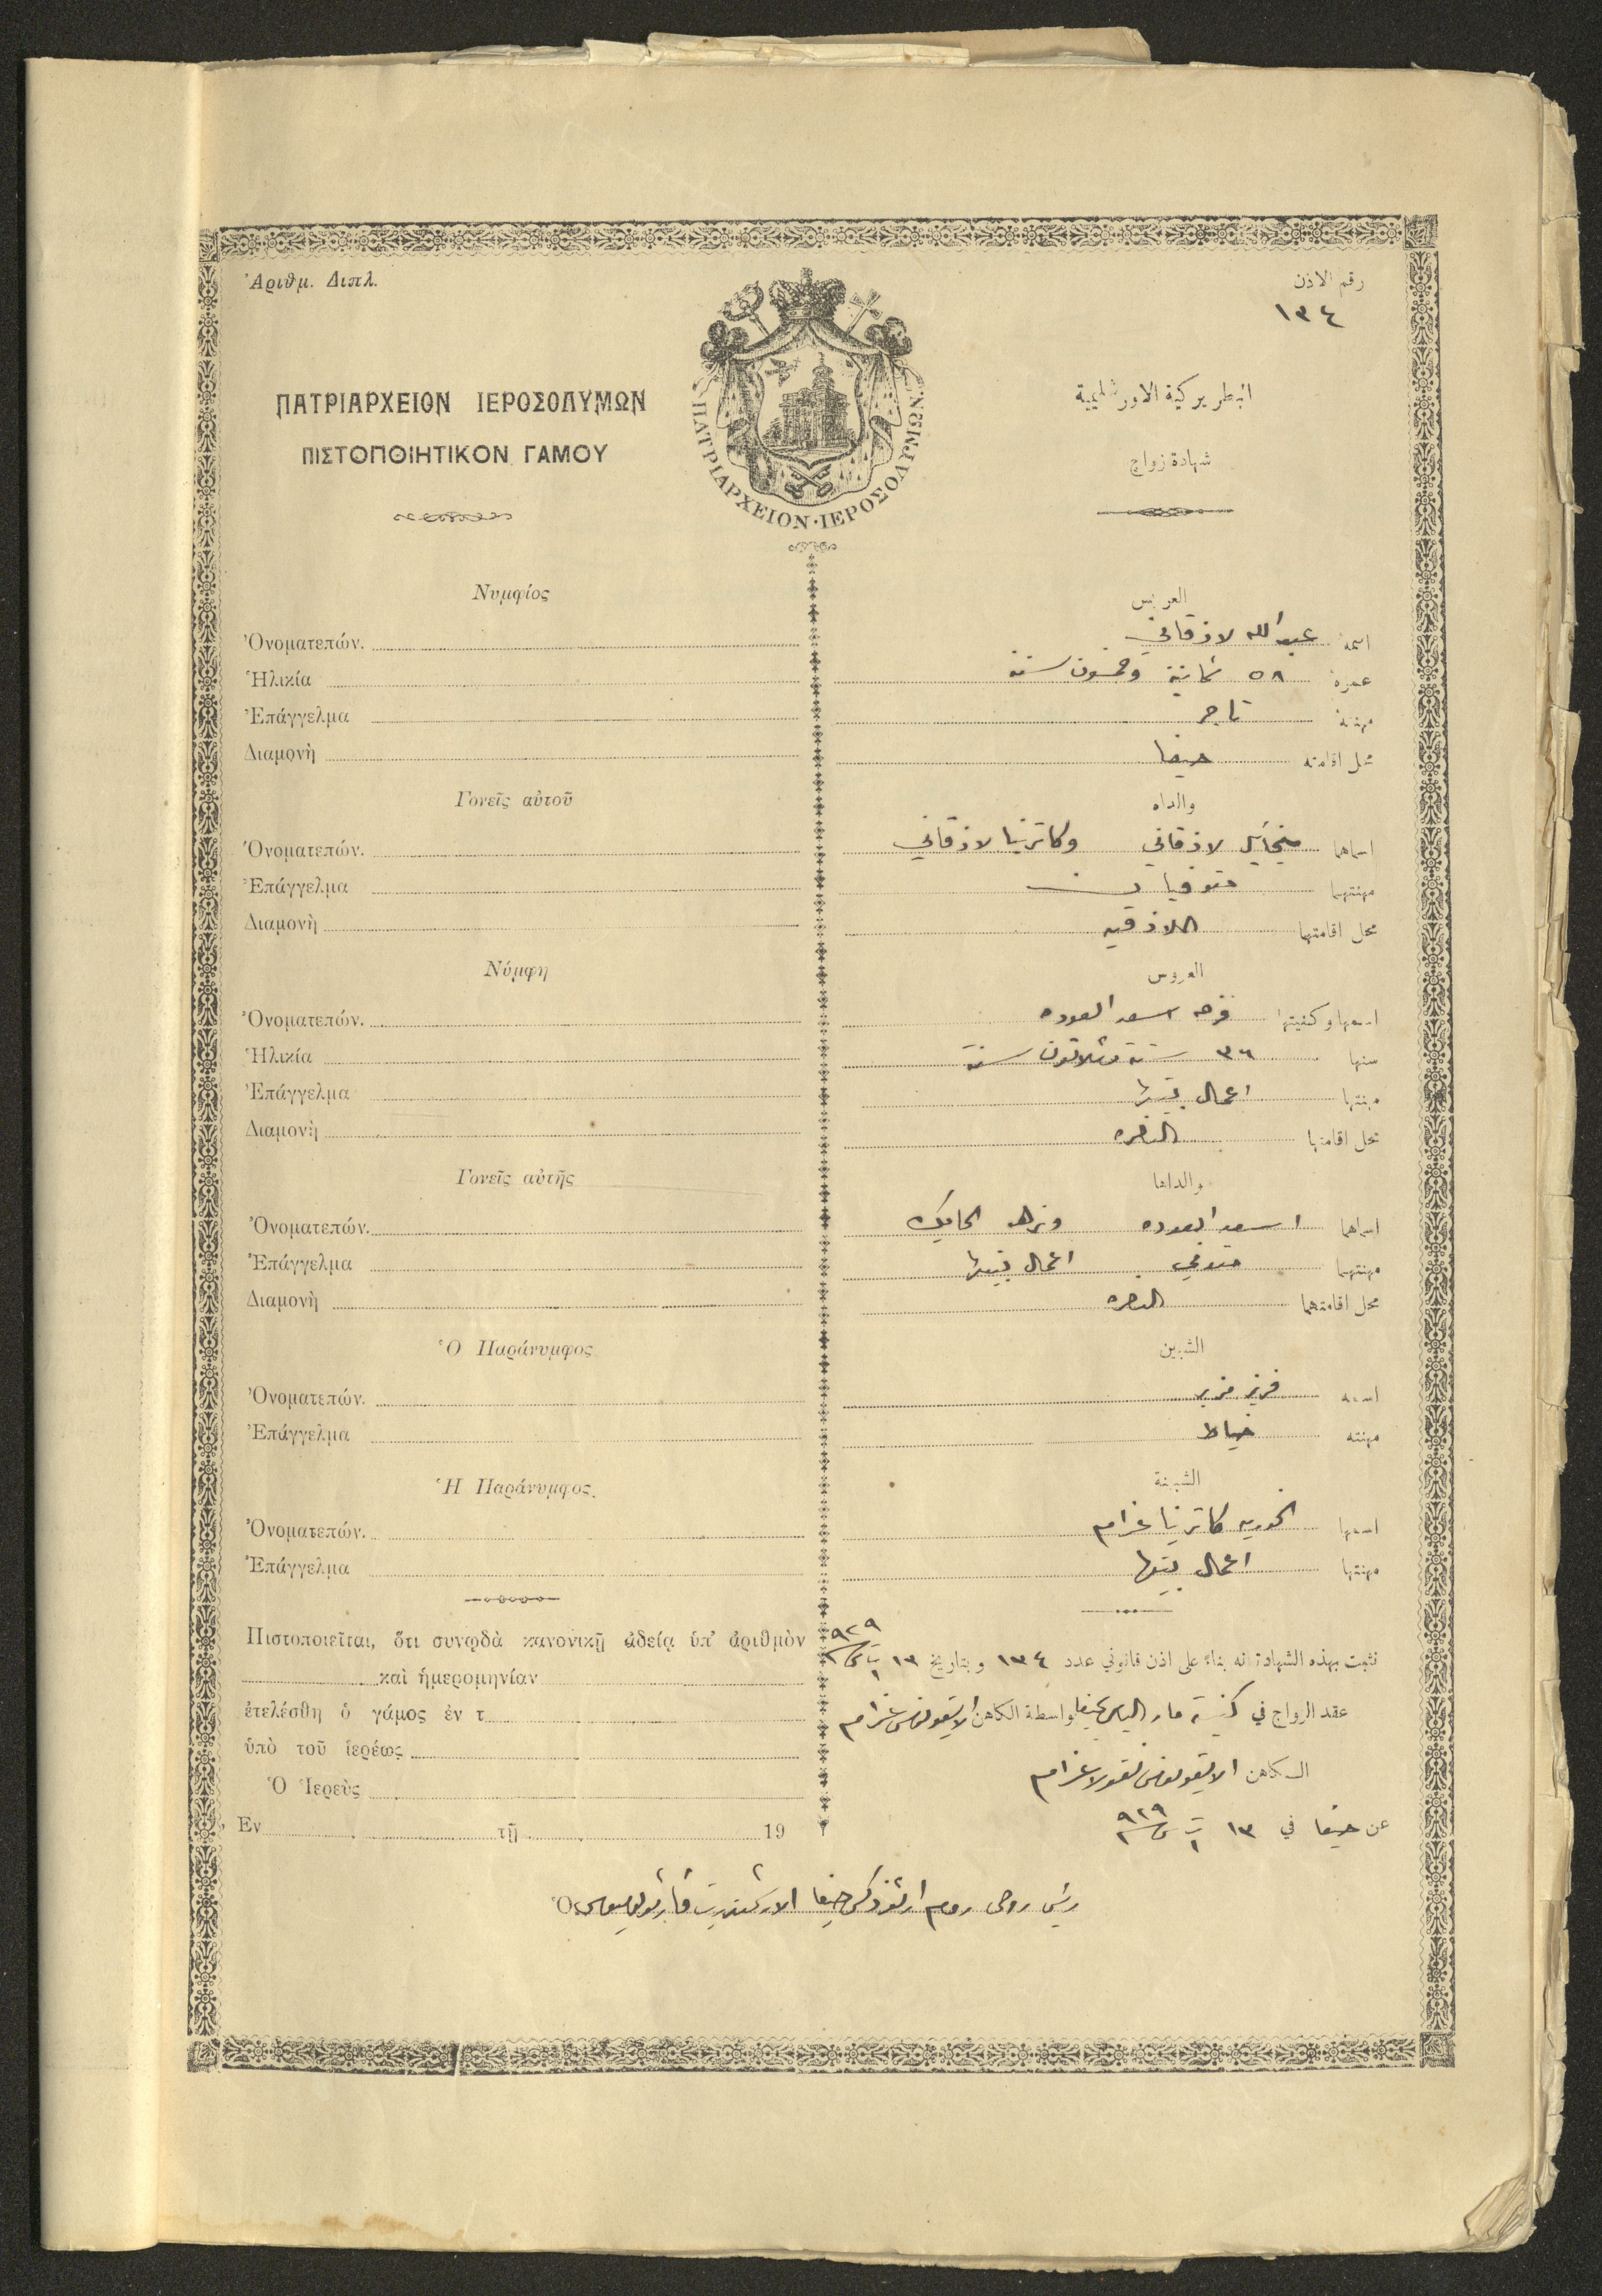 Ἀριθμ. Διπλ.
رقم الاذن
١٣٤
ΠΑΤΡΙΑΡΧΕΙΟΝ ΙΕΡΟΣΟΛΥΜΩΝ
ΠΙΣΤΟΠΟΙΗΤΙΚΟΝ ΓΑΜΟΥ
ΠΑΤΡΙΑΡΧΕΙΟΝ·ΙΕΡΟΣΟΛΥΜΩΝ
البطريركية الاورشليمية
شهادة زواج
Νυμφίος
Ὀνοματεπών.
Ἡλικία
Ἐπάγγελμα
Διαμονὴ
Γονεῖς αὐτοῦ
Ὀνοματεπών.
Ἐπάγγελμα
Διαμονὴ
Νύμφη
Ὀνοματεπών.
Ἡλικία
Ἐπάγγελμα
Διαμονὴ
Γονεῖς αὐτῆς
Ὀνοματεπών.
Ἐπάγγελμα
Διαμονὴ
Ὁ Παράνυμφος
Ὀνοματεπών.
Ἐπάγγελμα
Ἡ Παράνυμφος
Ὀνοματεπών.
Ἐπάγγελμα
Πιστοποιεῖται, ὅτι συνῳδὰ κανονικῇ ἀδείᾳ ὑπ' ἀριθμὸν
καὶ ἡμερομηνίαν
ἐτελέσθη ὁ γάμος ἐν τ
ὑπὸ τοῦ ἱερέως
Ὁ Ἱερεὺς
Ἐν τῇ 19
العريس
اسمه عبدالله لاذقاني
عمره ٥٨ ثمانية وخمسون سنة
مهنته تاجر
محل اقامته حيفا
والداه
اسماهما ميخائيل لاذقاني وكاترينا لاذقاني
مهنتهما متوفيان
محل اقامتهما اللاذقيه
العروس
اسمها وكنيتها فرحه اسعد العوده
سنها ٣٦ ستة وثلاثون سنة
مهنتها اعمال بيتها
محل اقامتها الناصره
والداها
اسماهما اسعد العوده ونزهه الحايك
مهنتهما متوفي اعمال بيتها
محل اقامتهما الناصره
الشبين
اسمه
مهنته خياط
الشبينة
اسمها الخوريه كاترينا غرام
مهنتها اعمال بيتها
نثبت بهذه الشهادة انه بناءً على اذن قانوني عدد ١٣٤ وبتاريخ ١٣ ت١ سنة ٩٢٩
عقد الزواج في كنيسة مار الياس بحيفا بواسطة الكاهن الايقونوس غرام
الكاهن الايقونوس نقولا غرام
عن حيفا في ١٣ ت١ سنة ٩٢٩
رئيس روحي روم ارثوذكس حيفا الارشمندريت
Ὁ